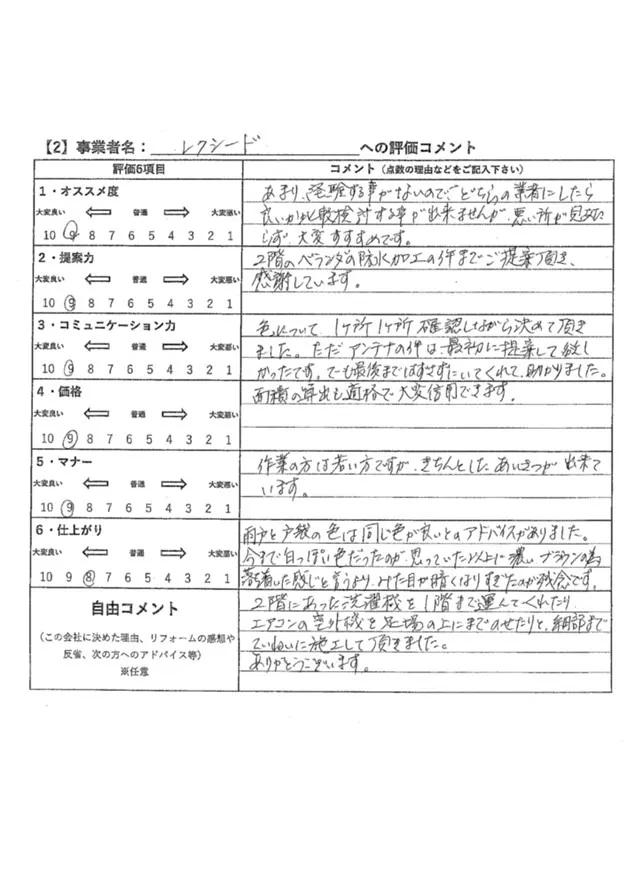 【2】事業者名： レクシード への評価コメント
評価6項目 コメント（点数の理由などをご記入下さい）
1・オススメ度
大変良い 普通 大変悪い
10 9 8 7 6 5 4 3 2 1
あまり、経験する事がないので、どちらの業者にしたら
良いか比較検討する事が出来ませんが、悪い所が見あた
らず、大変すすめです。
2・提案力
大変良い 普通 大変悪い
10 9 8 7 6 5 4 3 2 1
2階のベランダの防水加工の件までご提案頂き、
感謝しています。
3・コミュニケーション力
大変良い 普通 大変悪い
10 9 8 7 6 5 4 3 2 1
色について 1ヶ所1ヶ所確認しながら決めて頂き
ました。ただアンテナの件は、最初に提案して欲し
かったです。でも最後まではずさずにいてくれて、助かりました。
4・価格
大変良い 普通 大変悪い
10 9 8 7 6 5 4 3 2 1
面積の算出も適格で大変信用できます。
5・マナー
大変良い 普通 大変悪い
10 9 8 7 6 5 4 3 2 1
作業の方は若い方ですが、きちんとした、あいさつが出来て
います。
6・仕上がり
大変良い 普通 大変悪い
10 9 8 7 6 5 4 3 2 1
雨戸と戸袋の色は同じ色が良いとのアドバイスがありました。
今まで白っぽい色だったのが、思っていた以上に濃いブラウンの為
落着いた感じと言うより、みた目が暗くなりすぎたのが残念です。
自由コメント
（この会社に決めた理由、リフォームの感想や
反省、次の方へのアドバイス等）
※任意
2階にあった洗濯機を1階まで運んでくれたり、
エアコンの室外機を足場の上にまでのせたりと、細部まで
ていねいに施工して頂きました。
ありがとうございます。